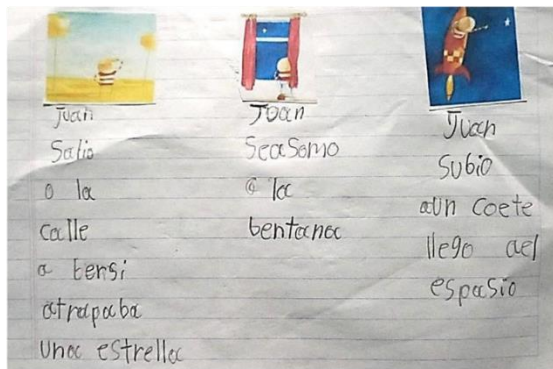 Juan
Salio
a la
calle
a bersi
atrapaba
una estrella
Joan
Seasomo
a la
bentana
Juan
subio
aun coete
llego ael
espasio